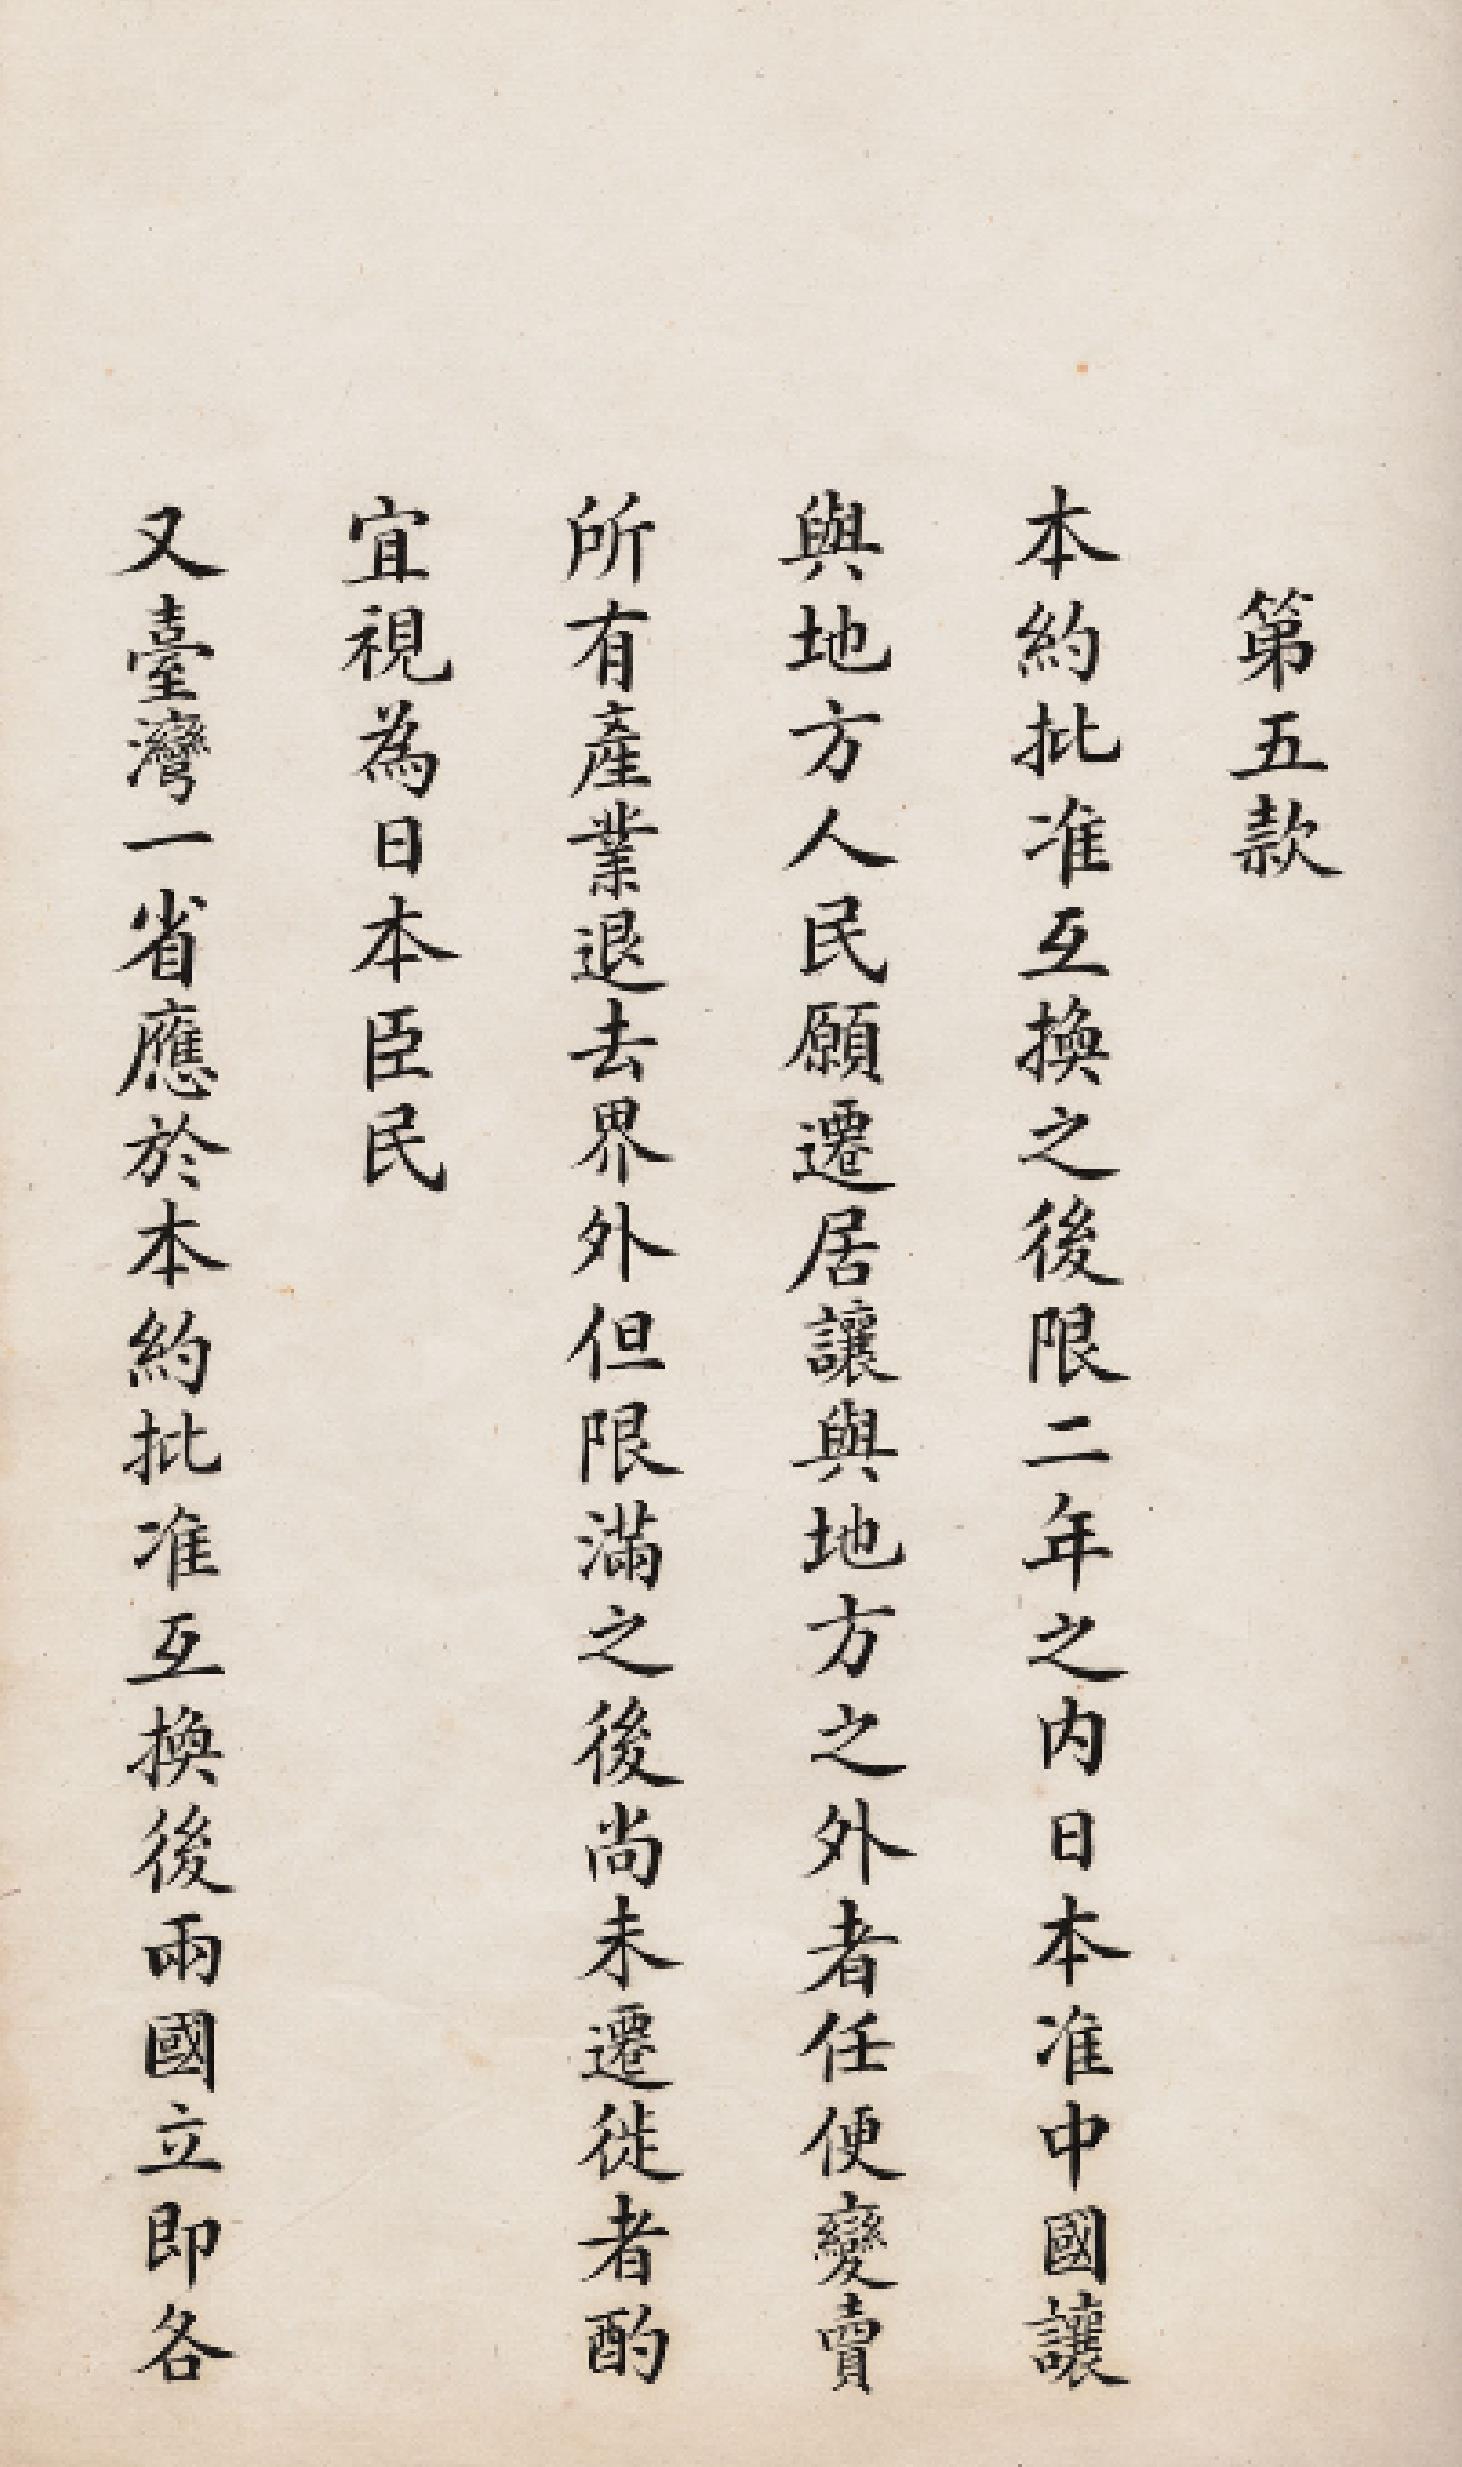 第五款
本約批准互換之後限二年之內日本准中國讓
與地方人民願遷居讓與地方之外者任便變賣
所有產業退去界外但限滿之後尚未遷徙者酌
宜視為日本臣民
又臺灣一省應於本約批准互換後兩國立即各